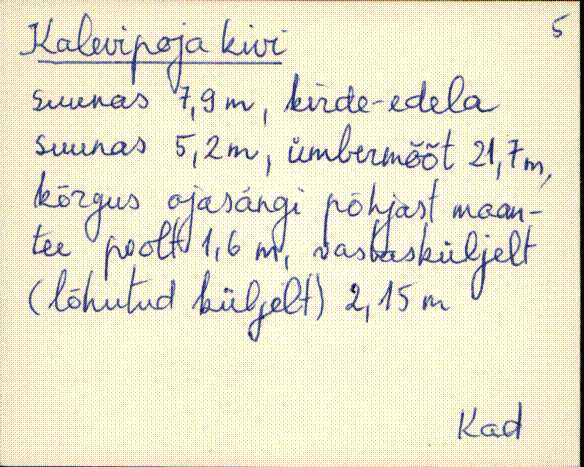 5
Kalevipoja kivi
suunas 7,9 m, kirde-edela
suunas 5,2 m, ümbermõõt 21,7 m,
kõrgus ojasängi põhjast maan-
tee poolt 1,6 m, vastasküljelt
(lõhutud küljelt) 2,15 m
Kad